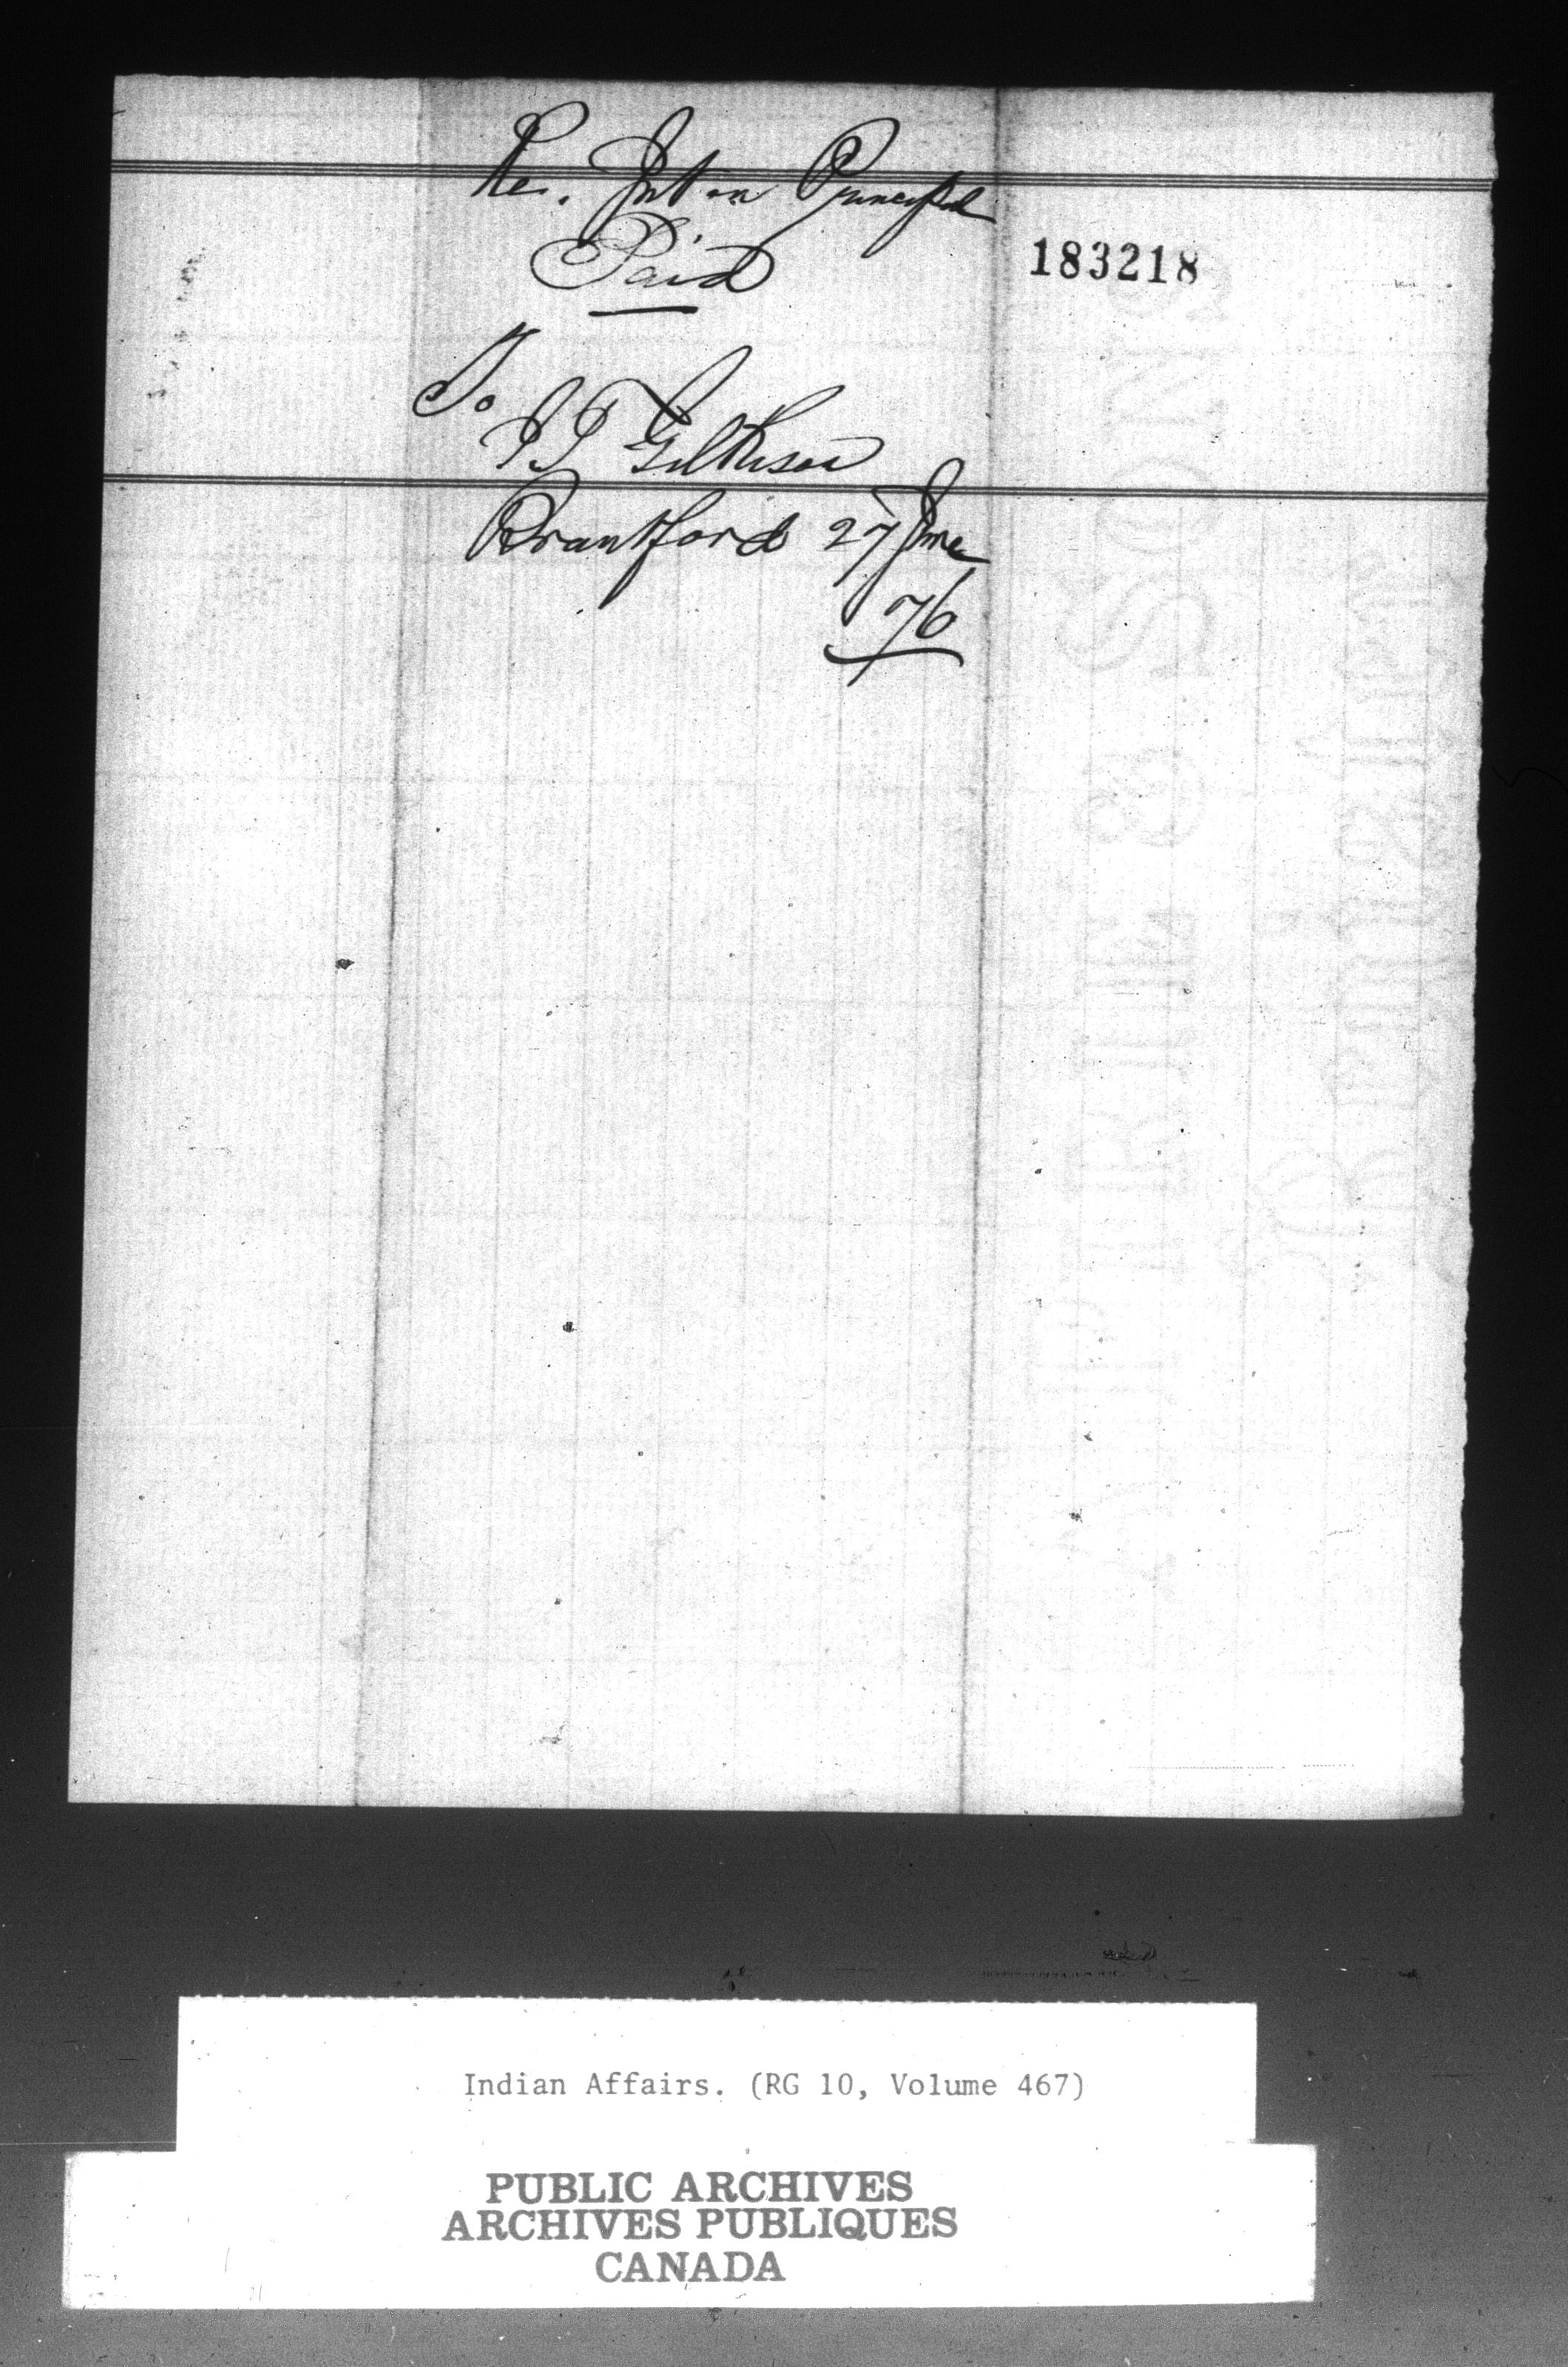 Rec. Int on Principal
Paid
183218
To
J T Gilkison
Brantford 27 June
76
Indian Affairs. (RG 10, Volume 467)
PUBLIC ARCHIVES
ARCHIVES PUBLIQUES
CANADA